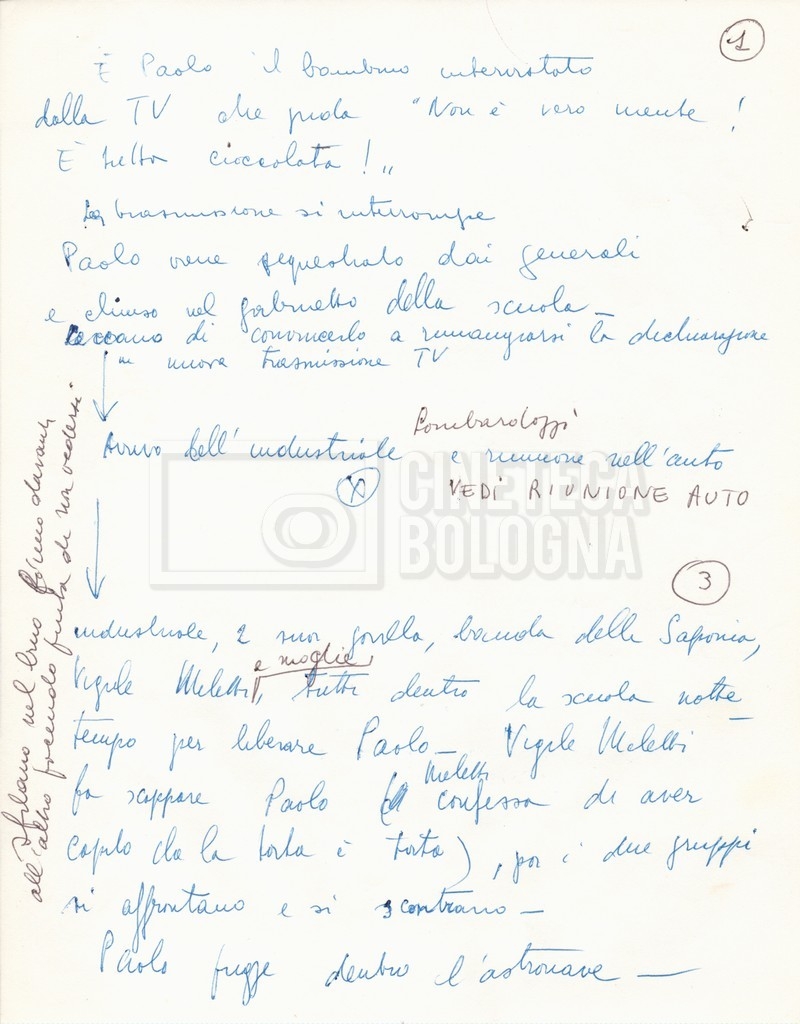 1
È Paolo il bambino intervistato
dalla TV che grida "Non è vero niente!
È tutta cioccolata!„
La trasmissione si interrompe
Paolo viene sequestrato dai generali
e chiuso nel gabinetto della scuola –
Cercano di convincerlo a rimangiarsi la dichiarazione
in nuova trasmissione TV
Lombardozzi
Arrivo dell'industriale e riunione nell'auto
VEDI RIUNIONE AUTO
CINETECA
BOLOGNA
3
industriale, 2 suoi gorilla, banda delle Saponia,
e moglie
Vigile Meletti, tutti dentro la scuola notte
tempo per liberare Paolo – Vigile Meletti
Meletti
fa scappare Paolo ( confessa di aver
capito che la torta è torta), poi i due gruppi
si affrontano e si scontrano –
Paolo fugge dentro l'astronave –
sfilano nel buio davanti
all'altro facendo finta di non vedersi